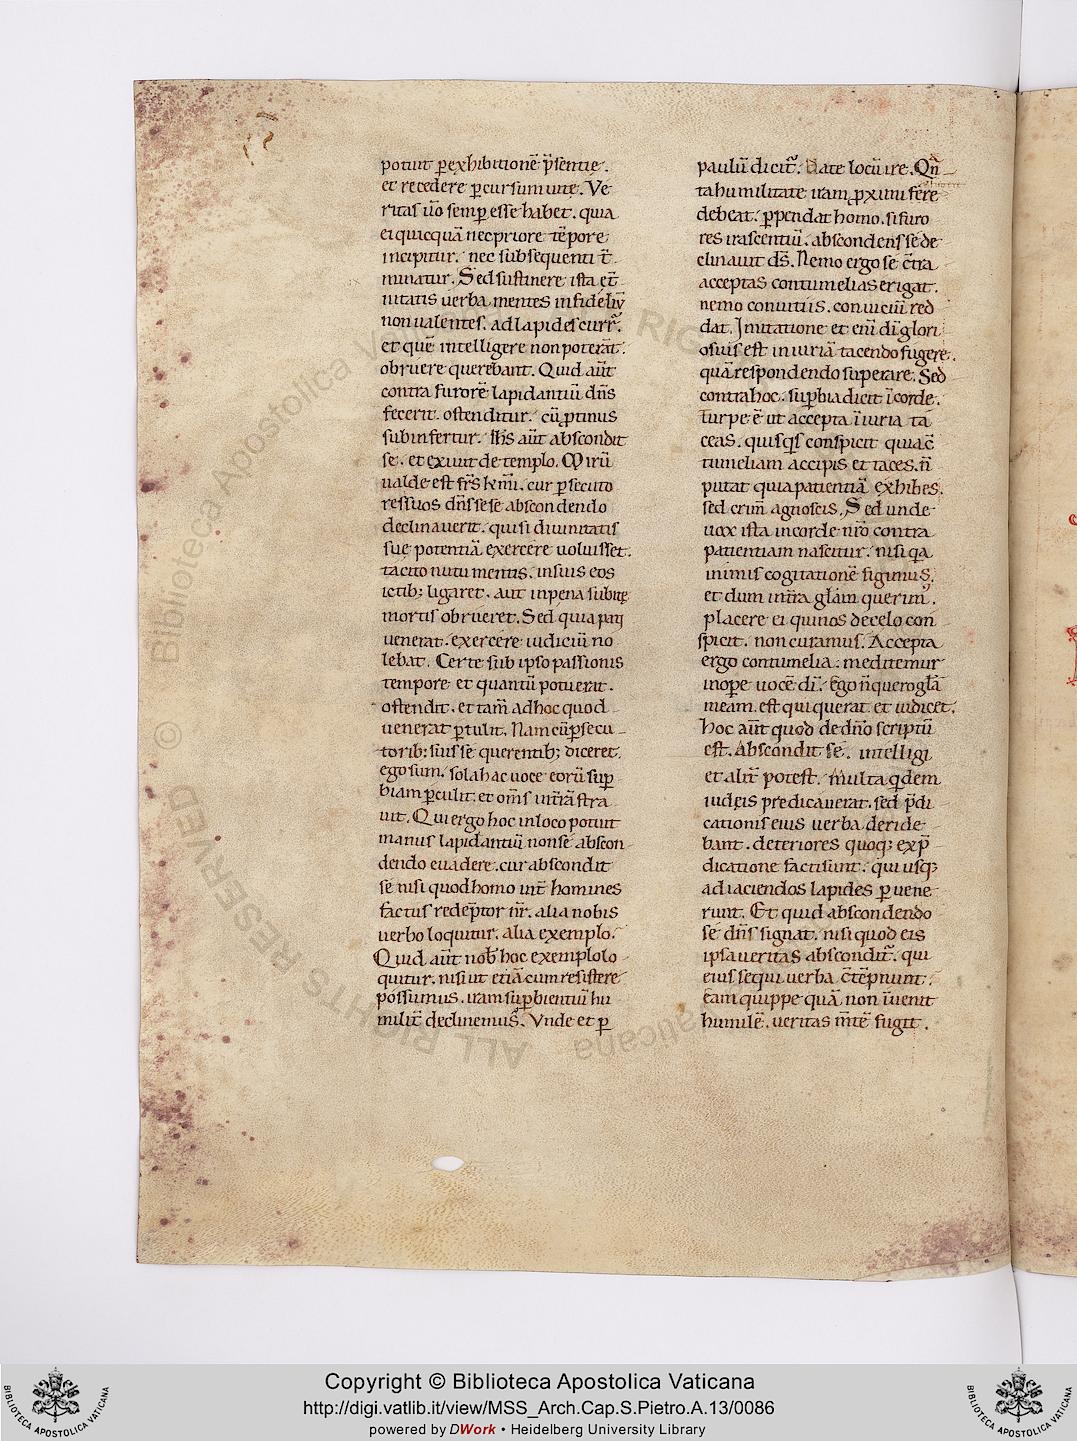 potuit ꝑ exhibitionē p̄sentię.
et recedere ꝑ cursum uitę. Ve
ritas ūo semꝑ esse habet. quia
ei quicquā nec priore tēpore
incipitur. nec subsequenti t̄
minatur. Sed sustinere ista et̄
nitatis uerba mentes infideliū
non ualentes. ad lapides curr̄.
et quē intelligere non poterāt.
obruere querebant. Quid aūt
contra furorē lapidantiū dn̄s
fecerit. ostenditur. cū ꝓtinus
subinfertur. Ih̄s aūt abscondit
se. et exiuit de templo. Mirū
ualde est fr̄s k̄mi. cur ꝑsecuto
res suos dn̄s sese abscondendo
declinauerit. qui si diuinitatis
suę potentiā exercere uoluisset.
tacito nutu mentis. in suis eos
ictib; ligaret. aut in pena subitę
mortis obrueret. Sed quia pati
uenerat. exercere iudiciū no
lebat. Certe sub ipso passionis
tempore et quantū potuerat.
ostendit. et tam̄ ad hoc quod
uenerat ꝑtulit. Nam cū ꝑsecu
torib; suis se querentib; diceret.
ego sum. sola hac uoce eorū suꝑ
biam ꝑculit. et om̄s in t̄rā stra
uit. Qui ergo hoc in loco potuit
manus lapidantiū non se abscon
dendo euadere. cur abscondit
se nisi quod homo int̄ homines
factus redēptor nr̄. alia nobis
uerbo loquitur. alia exemplo.
Quid aūt nob̄ hoc exemplo lo
quitur. nisi ut etiā cum resistere
possumus. iram suꝑbientiū hu
milit̄ declinemus. Vnde et ꝑ
paulū dicit᷑. Date locū ire. Qn̄
ta humilitate iram ꝓximi fere
debeat. ꝑpendat homo. si furo
res irascentiū. abscondens se de
clinauit ds̄. Nemo ergo se c̄tra
acceptas contumelias erigat.
nemo conuitiis. conuiciū red
dat. Imitatione et enī dī glori
osius est iniuriā tacendo fugere.
quā respondendo superare. Sed
contra hoc. suꝑbia dicit ī corde.
Turpe ē ut accepta īiuria ta
ceas. quisq̄s conspicit quia c̄
tumeliam accipis et taces. n̄
putat quia patientiā exhibes.
sed crim̄ agnoscis. Sed unde
uox ista in corde nr̄o contra
patientiam nascitur. nisi q̄a
in imis cogitationē figimus.
et dum in t̄ra glām querim᷒.
placere ei qui nos de celo con
spicit. non curamus. Accepta
ergo contumelia. meditemur
in oꝑe uocē dī. Ego n̄ quero glā
meam. est qui querat et iudicet.
hoc aūt quod de dn̄o scriptū
est. Abscondit sē. intelligi
et alit̄ potest. multa q̄dem
iudeis predicauerat. sed p̄di
cationis eius uerba deride
bant. deteriores quoq; ex p̄
dicatione facti sunt. qui usq;
ad iaciendos lapides ꝑuene
runt. Et quid abscondendo
se dn̄s signat. nisi quod eis
ipsa ueritas abscondit᷑. qui
eius sequi uerba c̄tēpnunt.
Eam quippe quā non īuenit
humilē. ueritas m̄tē fugit.
ALL RIGHTS RESERVED © Biblioteca Apostolica Vaticana
Copyright © Biblioteca Apostolica Vaticana
http://digi.vatlib.it/view/MSS_Arch.Cap.S.Pietro.A.13/0086
powered by DWork • Heidelberg University Library
BIBLIOTECA APOSTOLICA VATICANA
BIBLIOTECA APOSTOLICA VATICANA